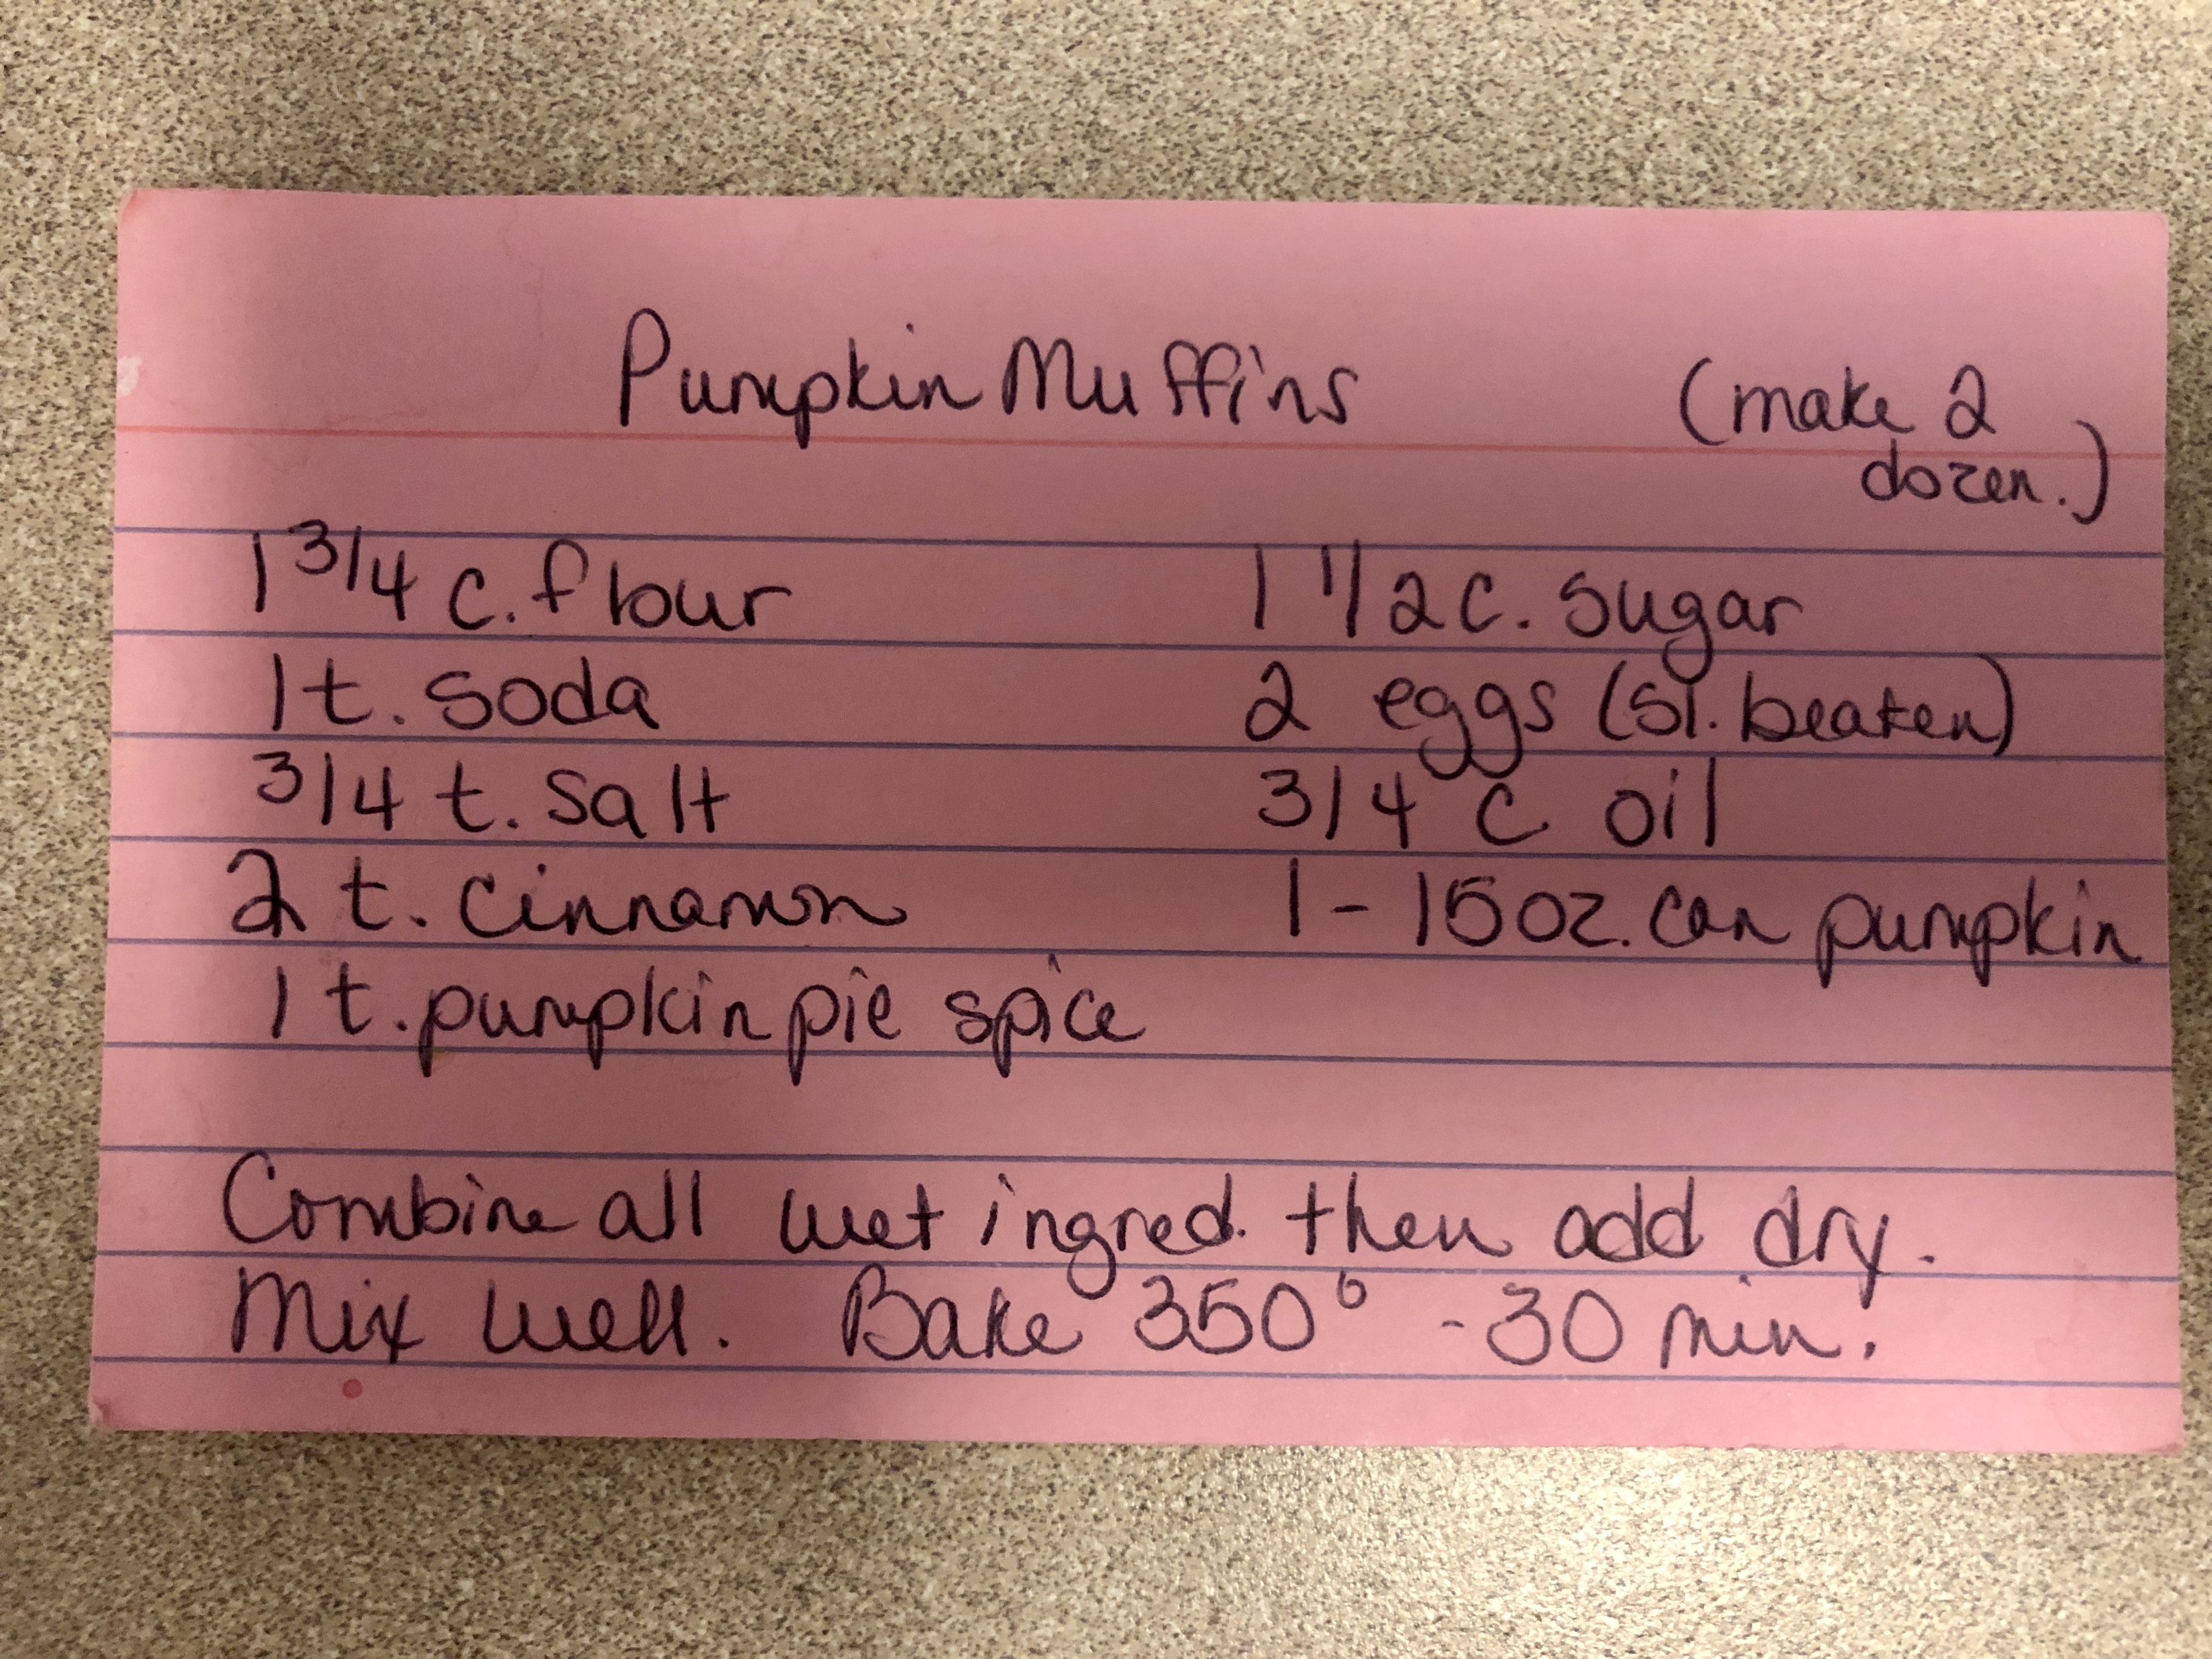 Pumpkin Muffins
(make 2
dozen.)
1 3/4 c. flour
1 t. soda
3/4 t. salt
2 t. cinnamon
1 t. pumpkin pie spice
1 1/2 c. sugar
2 eggs (sl. beaten)
3/4 c oil
1 - 15 oz. can pumpkin
Combine all wet ingred. then add dry.
Mix well. Bake 350° - 30 min.